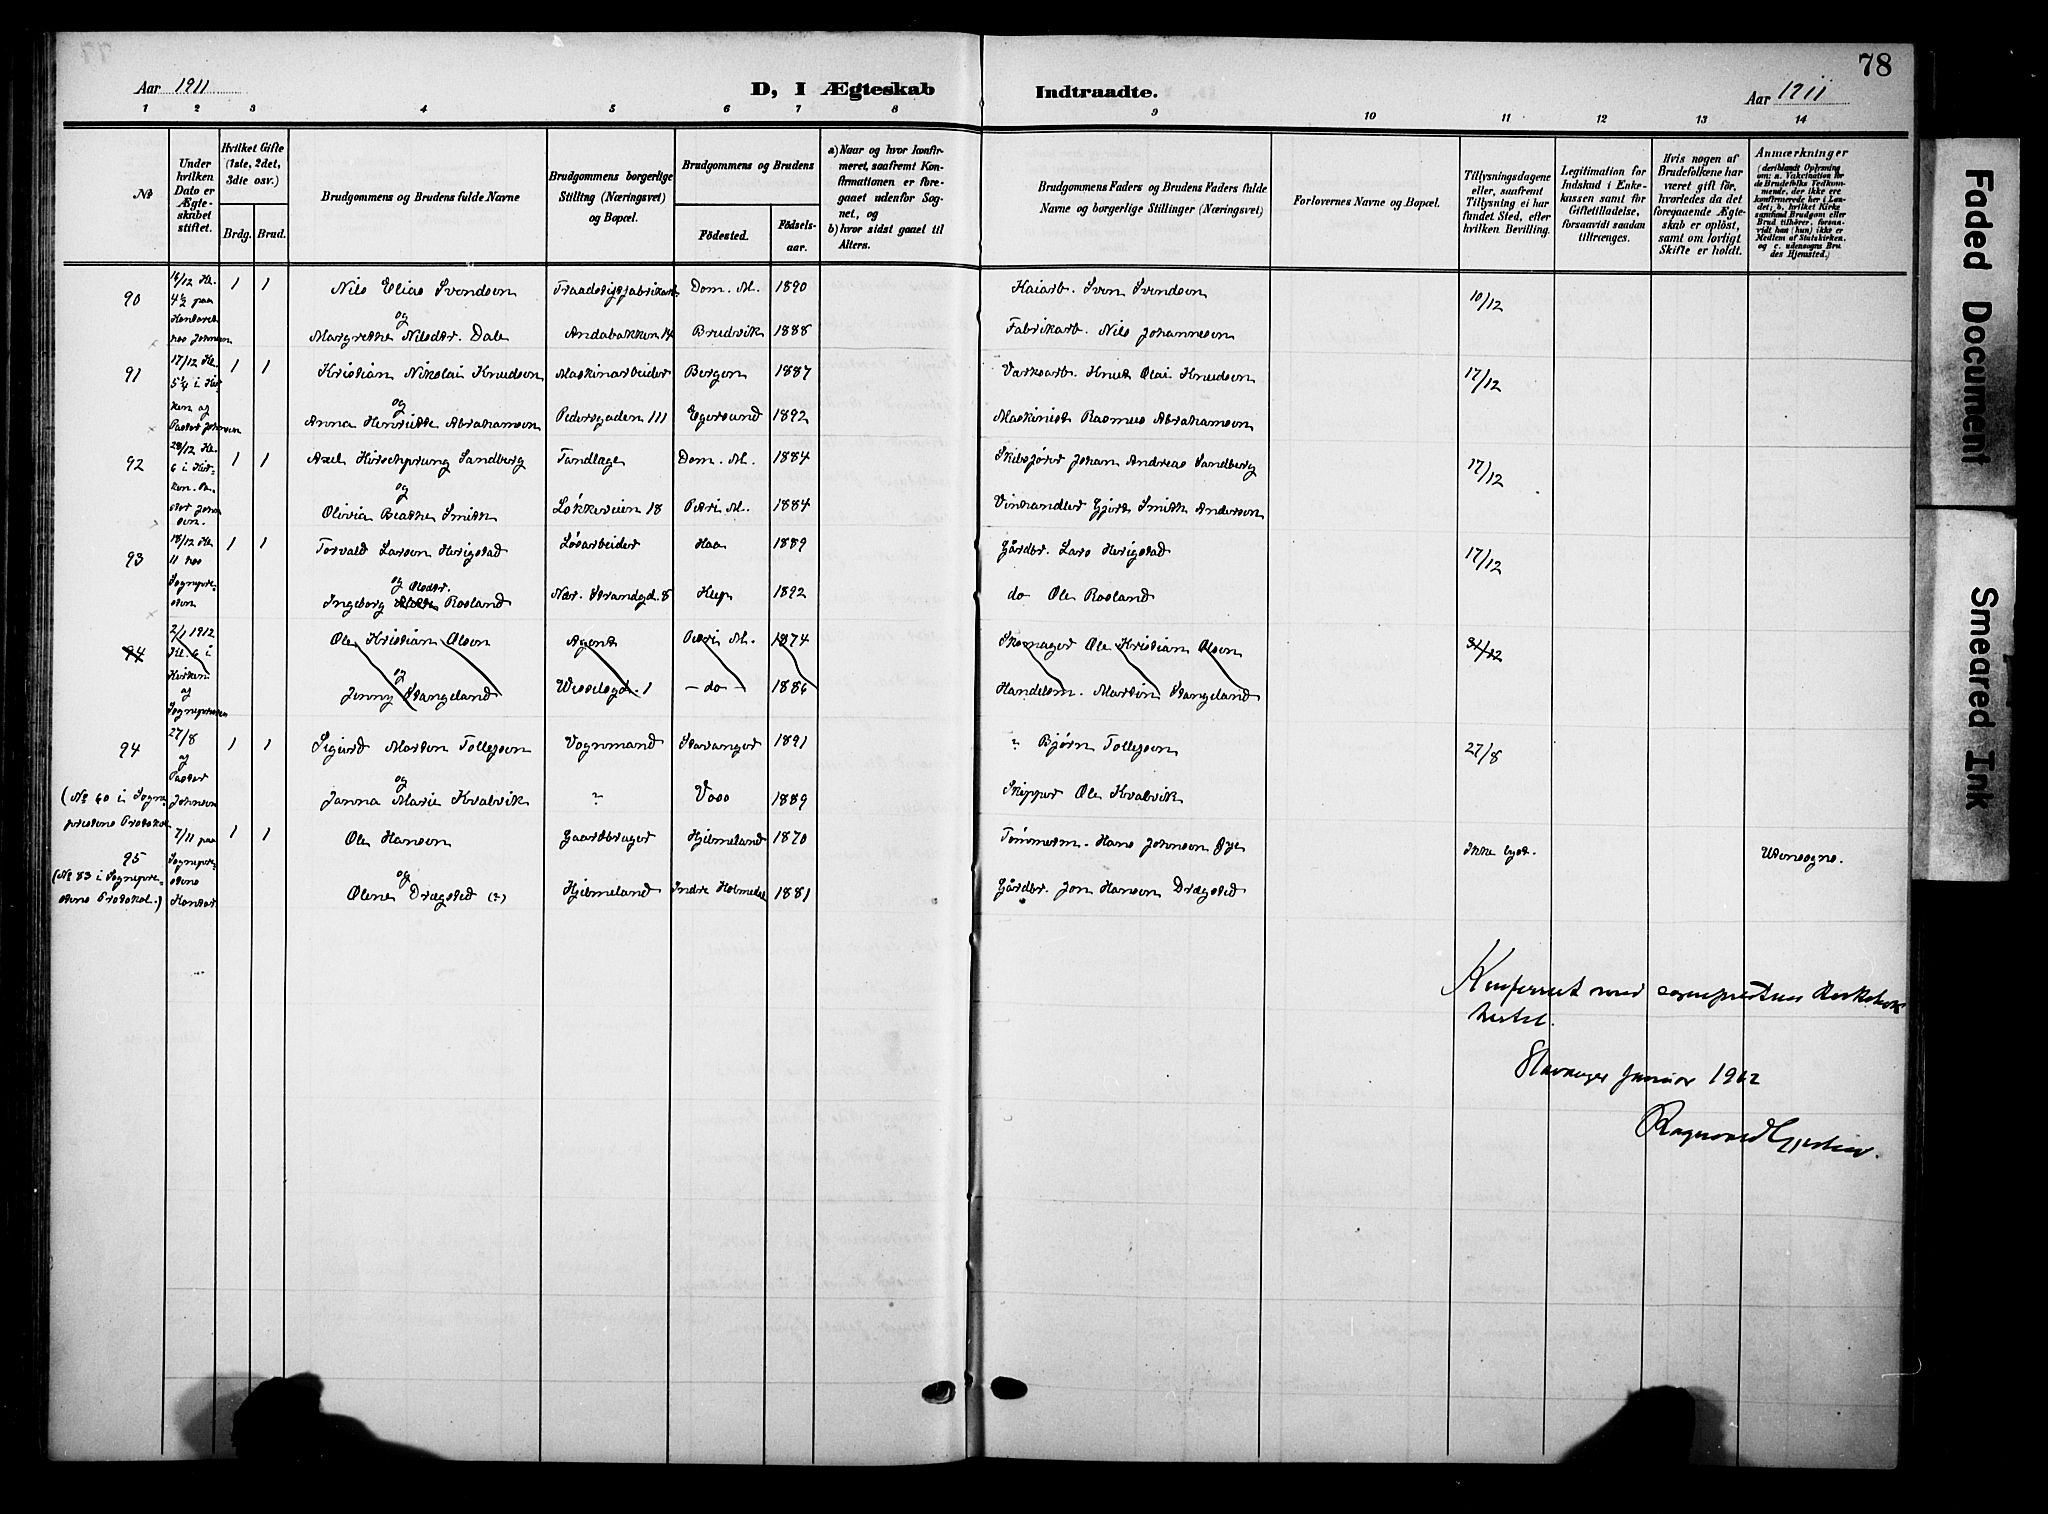 78
Aar 1911
D, I Ægteskab Indtraadte.
Aar 1911
1 2 3 4 5 6 7 8 9 10 11 12 13 14
№
Under hvilken Dato er Ægteskabet stiftet.
Hvilket Gifte (1ste, 2det, 3die osv.)
Brdg. Brud.
Brudgommens og Brudens fulde Navne
Brudgommens borgerlige Stilling (Næringsvei) og Bopæl.
Brudgommens og Brudens
Födested.
Födsels-aar.
a) Naar og hvor konfirmeret, saafremt Konfirmationen er foregaaet udenfor Sognet, og
b) hvor sidst gaaet til Alters.
Brudgommens Faders og Brudens Faders fulde Navne og borgerlige Stillinger (Næringsvei)
Forlovernes Navne og Bopæl.
Tillysningsdagene eller, saafremt Tillysning ei har fundet Sted, efter hvilken Bevilling.
Legitimation for Indskud i Enkekassen samt for Giftetilladelse, forsaavidt saadan tiltrænges.
Hvis nogen af Brudefolkene har været gift för, hvorledes da det foregaaende Ægteskab er oplöst, samt om lovligt Skifte er holdt.
Anmærkninger
(deriblandt Oplysning om: a. Vakcination for de Brudefolks Vedkommende, der ikke ere konfirmerede her i Landet; b. hvilket Kirkesamfund Brudgom eller Brud tilhörer, forsaavidt han (hun) ikke er Medlem af Statskirken, og c. udensogns Brudes Hjemsted.)
90 16/12 Kl. 4½ paa Kontoret hos Johnsen 1 1 Nils Elias Svendsen Traadstiftfabrikarb. Dom. M. 1890 Kaiarb. Sven Svendsen 10/12
og
Margrethe Nilsdtr. Dale Andabakken 14 Brudvik 1888 Fabrikarb. Nils Johannesen
91 17/12 Kl. 5¼ i Kirken af Pastor Johnsen 1 1 Kristian Nikolai Knudsen Maskinarbeider Bergen 1887 Verksarb. Knut Olai Knudsen 17/12
og
Anna Henriette Abrahamsen Pedersgaden 111 Egersund 1892 Maskinist Rasmus Abrahamsen
92 28/12 Kl. 6 i Kirken. Pastor Johnsen. 1 1 Axel Hirschprung Sandberg Tandlæge Dom. M. 1884 Skibsfører Johan Andreas Sandberg 17/12
og
Olivia Beathe Smith Løkkeveien 18 Petri M. 1884 Vinhandler Gjert Smith Andersen
93 18/12 Kl 11 hos Sognepresten 1 1 Torvald Larsen Herigstad Løsarbeider Haa 1889 Gårdbr. Lars Herigstad 17/12
og
Ingeborg Olsdtr. Rosland Nør. Strandgd. 8 Klep 1892 do Ole Rosland
94 2/1 1912 Kl. 6 i Kirken af Sognepresten Ole Kristian Olsen Agent Petri M. 1874 Skomager Ole Kristian Olsen 31/12
og
Jenny Stangeland Wesselsgd. 1 – do – 1886 Handelsm. Martin Stangeland
94 27/8 af Pastor Johnsen 1 1 Sigurd Morten Tollefsen Vognmand Stavanger 1891 ? Bjørn Tollefsen 27/8
og
(№ 60 i Sogneprestens Protokol Janna Marie Kvalvik ? Voss 1889 Skipper Ole Kvalvik
95 7/11 paa Sogneprestens Kontor 1 1 Ole Hansen Gaardbruger Hjelmeland 1870 Tømmerm. Hans Johnsen Øye Ikke lyst. Utensogns.
og
(№ 83 i Sogneprestens Protokol.) Olene Drægsted (?) Hjelmeland Indre Holmedal 1881 Gårdbr. Jon Hansen Drægsted
Konferert med sogneprestens kirkebok
Stavanger Januar 1912
Faded Document
Smeared Ink